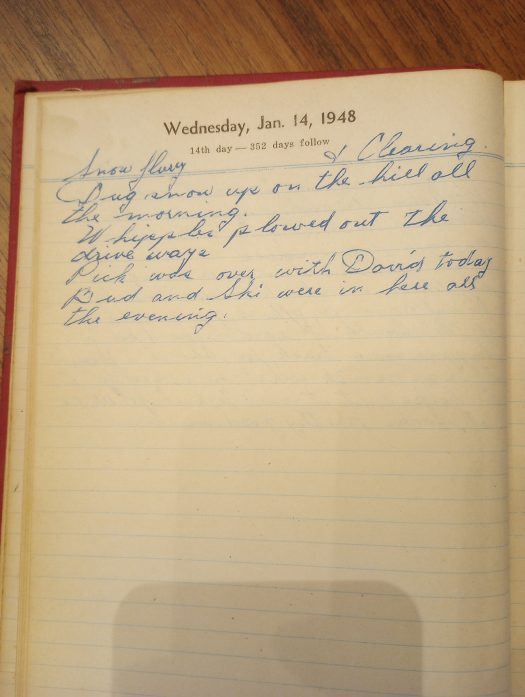 Wednesday, Jan. 14, 1948
14th day — 352 days follow
Snow flurry & Clearing.
Dug snow up on the hill all
the morning.
Whipples plowed out the
drive ways
was over with David today
Bud and Ski were in here all
the evening.